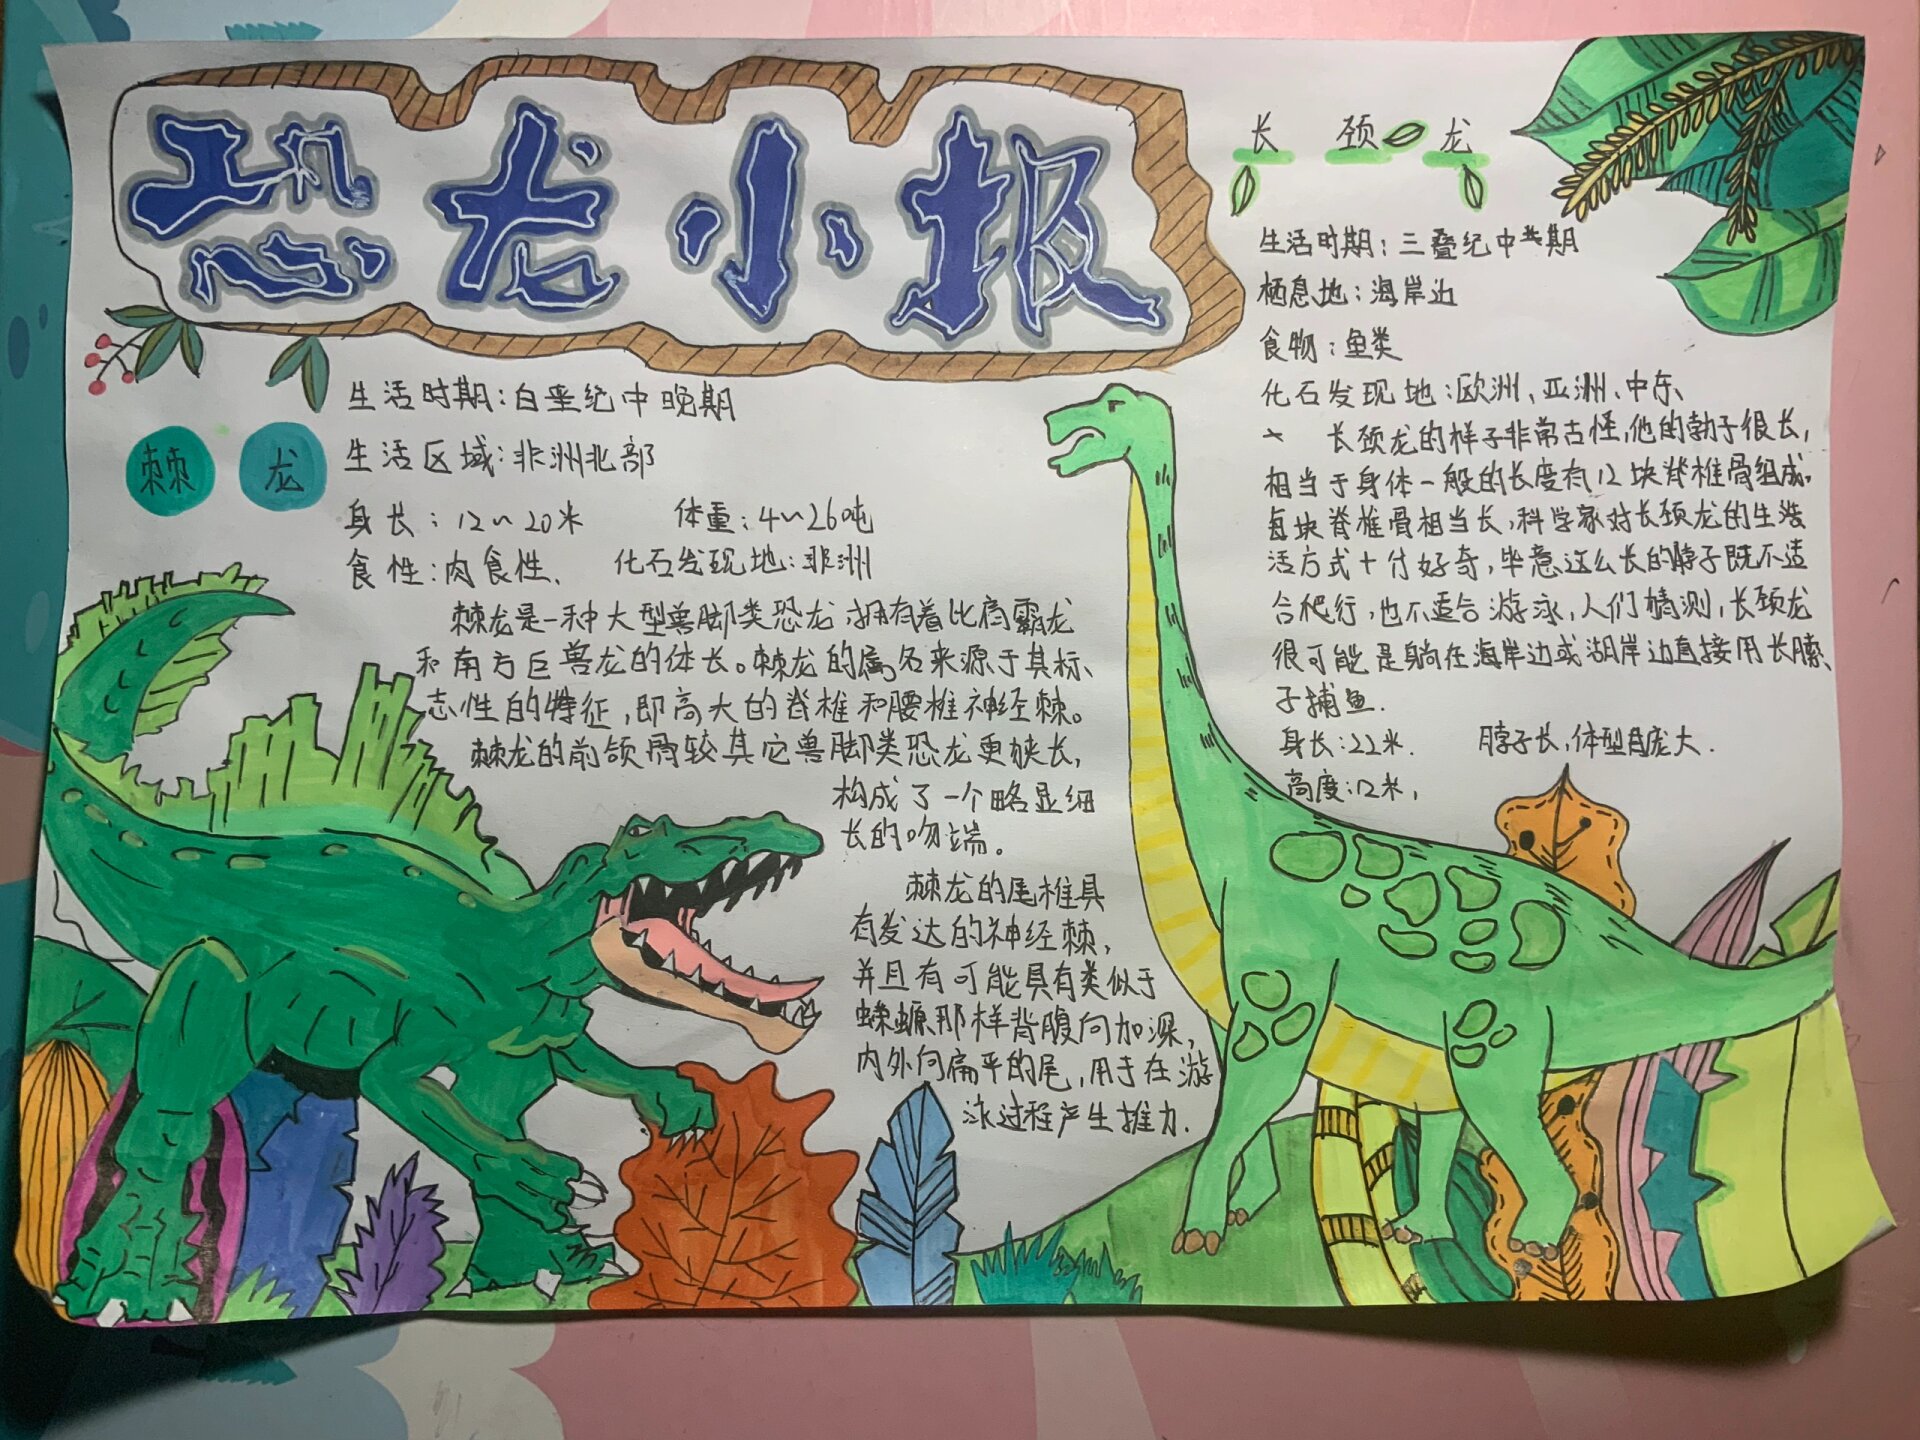 恐龙小报
棘龙
生活时期:白垩纪中晚期
生活区域:非洲北部
身长:12~20米 体重:4~26吨
食性:肉食性、 化石发现地:非洲
棘龙是一种大型兽脚类恐龙,拥有着比肩霸龙
和南方巨兽龙的体长。棘龙的属名来源于其标
志性的特征,即高大的脊椎和腰椎神经棘。
棘龙的前颌骨较其它兽脚类恐龙更狭长,
构成了一个略显细
长的吻端。
棘龙的尾椎具
有发达的神经棘,
并且有可能具有类似于
蝾螈那样背腹向加深,
内外向扁平的尾,用于在游
泳过程产生推力.
长颈龙
生活时期:三叠纪中期
栖息地:海岸边
食物:鱼类
化石发现地:欧洲、亚洲、中东、
长颈龙的样子非常古怪,他的勃子很长,
相当于身体一般的长度有12块脊椎骨组成,
每块脊椎骨相当长,科学家对长颈龙的生
活方式十分好奇,毕意这么长的脖子既不适
合爬行,也不适合游泳,人们猜测,长颈龙
很可能是躺在海岸边或湖岸边直接用长
子捕鱼.
身长:22米. 脖子长,体型庞大.
高度:12米,